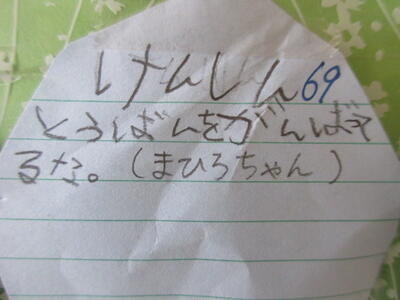 けんしん69
とうばんをがんばって
るな。(まひろちゃん)